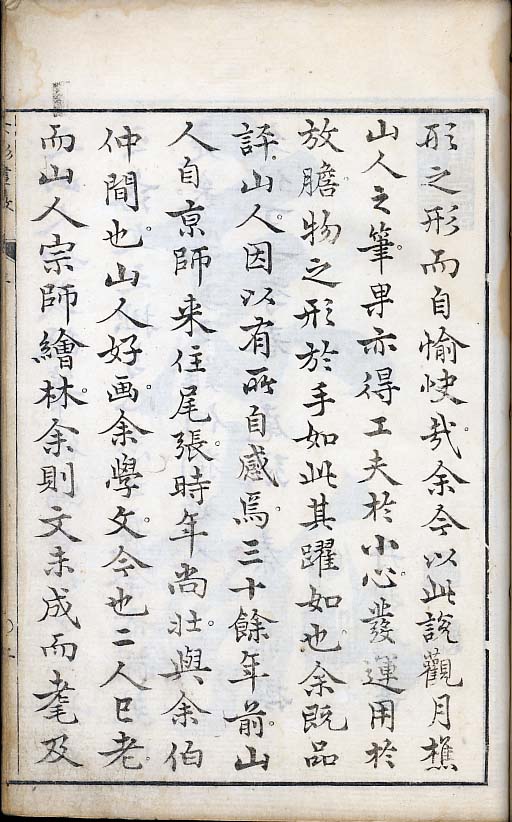 形之形而自愉快哉余今以此説觀月樵
山人之筆果亦得工夫於小心發運用於
放膽物之形於手如此其躍如也余既品
評山人因以有所自感焉三十餘年前山
人自京師来住尾張時年尚壯與余伯
仲間也山人好画余學文今也二人已老
而山人宗師繪林余則文未成而耄及